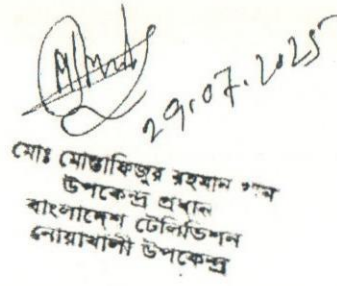 29.07.2025
মোঃ মোস্তাফিজুর রহমান খান
উপকেন্দ্র প্রধান
বাংলাদেশ টেলিভিশন
নোয়াখালী উপকেন্দ্র